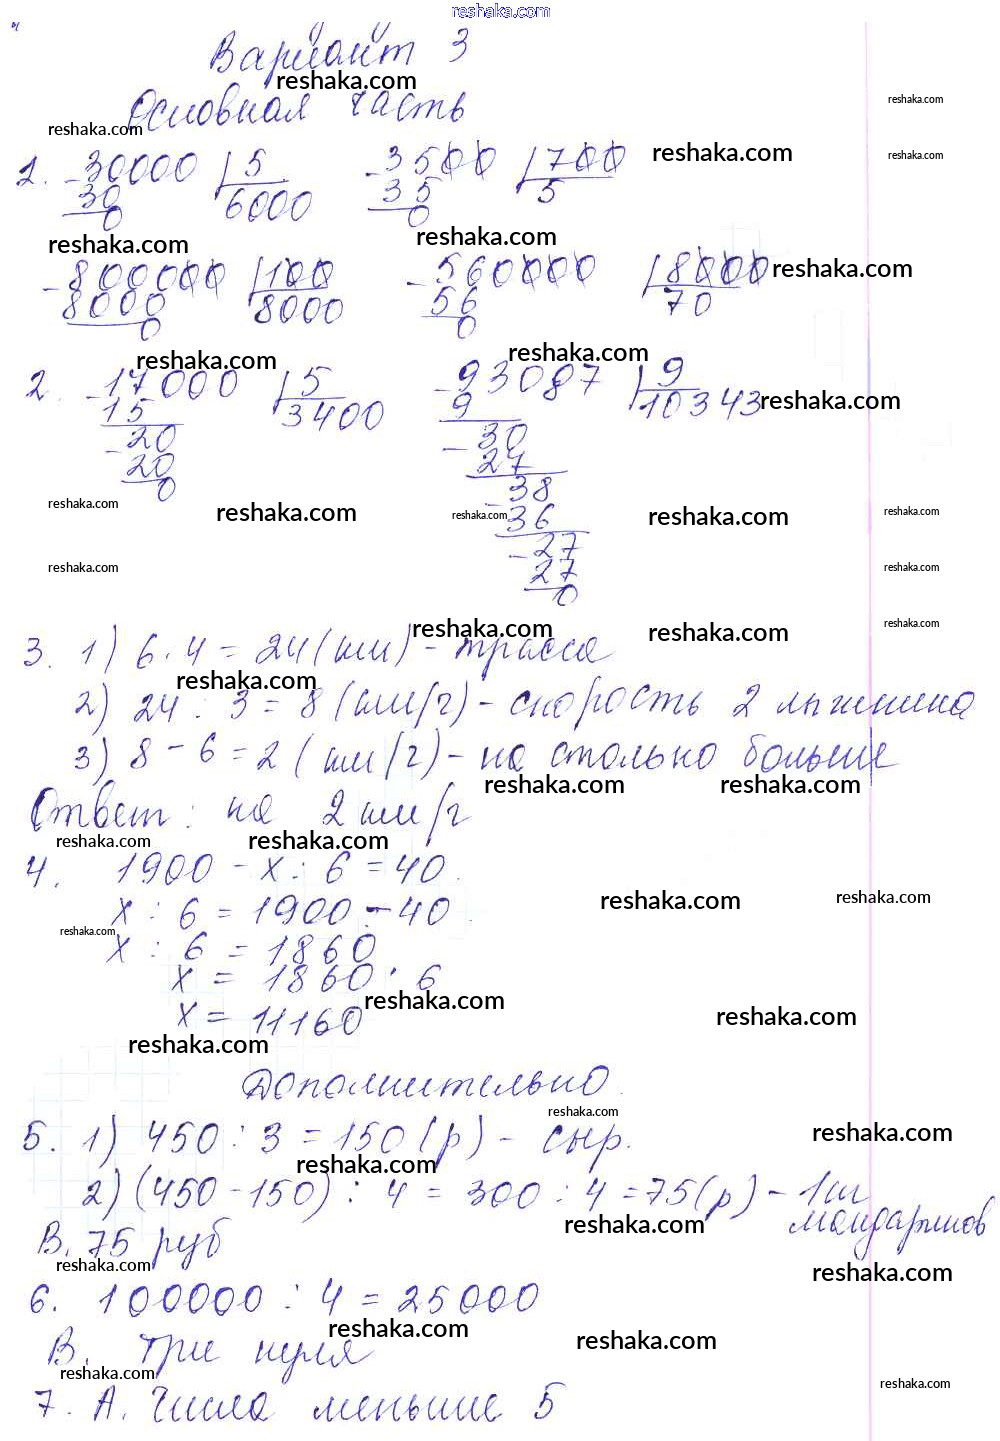 reshaka.com
Вариант 3
reshaka.com
Основная часть
reshaka.com reshaka.com
1. -30000 | 5 -3500 | 700 reshaka.com reshaka.com
30 6000 35 5
0 0
reshaka.com reshaka.com
-800000 | 100 -560000 | 8000 reshaka.com
8000 8000 56 70
0 0
reshaka.com reshaka.com
2. -17000 | 5 -93087 | 9
15 3400 9 10343 reshaka.com
-20 -30
20 27
0 -38
reshaka.com reshaka.com reshaka.com reshaka.com reshaka.com
36
-27
reshaka.com 27 reshaka.com
0
reshaka.com reshaka.com reshaka.com
3. 1) 6 · 4 = 24 (км) - трасса
reshaka.com
2) 24 : 3 = 8 (км/г) - скорость 2 лыжника
3) 8 - 6 = 2 (км/г) - на столько больше
reshaka.com reshaka.com
Ответ: на 2 км/г
reshaka.com reshaka.com
4. 1900 - х : 6 = 40
reshaka.com reshaka.com
х : 6 = 1900 - 40
reshaka.com
х : 6 = 1860
х = 1860 · 6
reshaka.com reshaka.com
х = 11160
reshaka.com
Дополнительно.
reshaka.com
5. 1) 450 : 3 = 150 (р) - сыр.
reshaka.com
reshaka.com
2) (450 - 150) : 4 = 300 : 4 = 75 (р) - 1 кг
мандаринов
reshaka.com
В. 75 руб
reshaka.com reshaka.com
6. 100000 : 4 = 25000
reshaka.com reshaka.com
В. три нуля
reshaka.com reshaka.com
7. А. Числа меньше 5